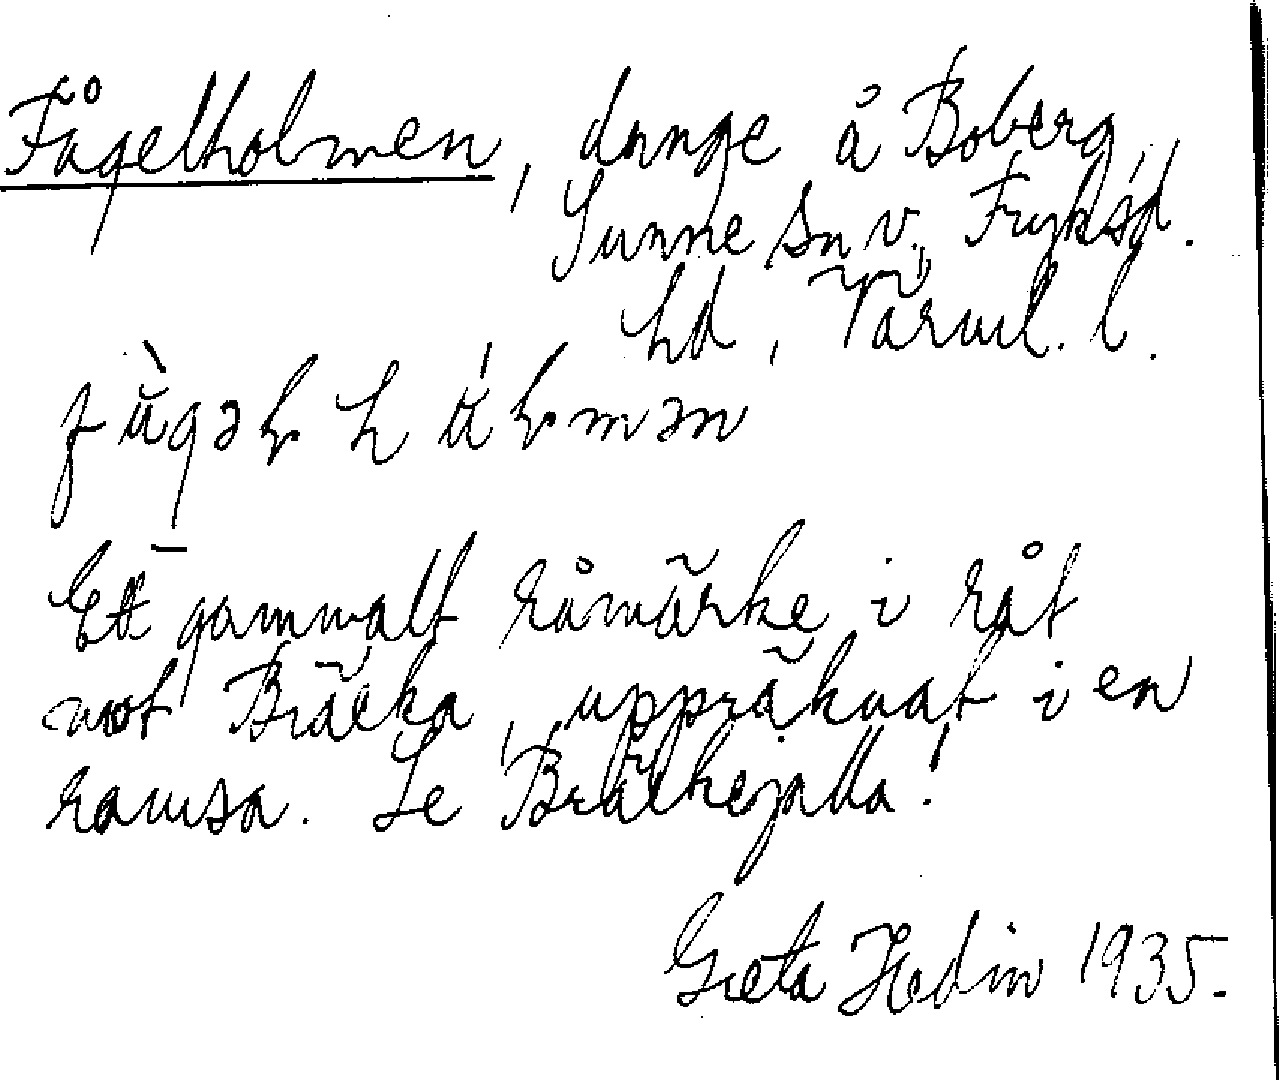 Fågelholmen, dunge å Boberg,
Sunne sn v., Fryksd.
hd, Värml. l.
Ett gammalt råmärke i råt
mot Brälka, uppräknat i en
ramsa. Se Brälkejälla!
Greta Hedin 1935.